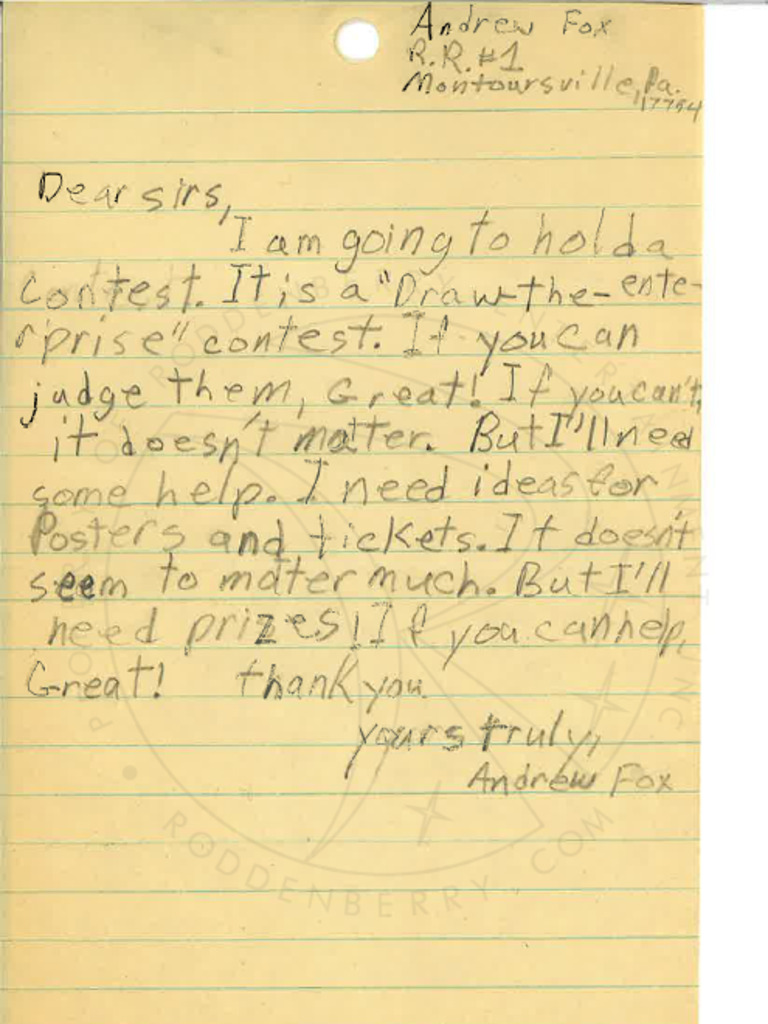 Andrew Fox
R.R.#1
Montoursville, Pa.
17754
Dear sirs,
I am going to hold a
contest. It is a "Draw-the-ente-
rprise" contest. If you can
judge them, Great! If you can't,
it doesn't matter. But I'll need
some help. I need ideas for
Posters and tickets. It doesn't
seem to mater much. But I'll
need prizes! If you can help,
Great! thank you.
yours truly,
Andrew Fox
RODDENBERRY.COM